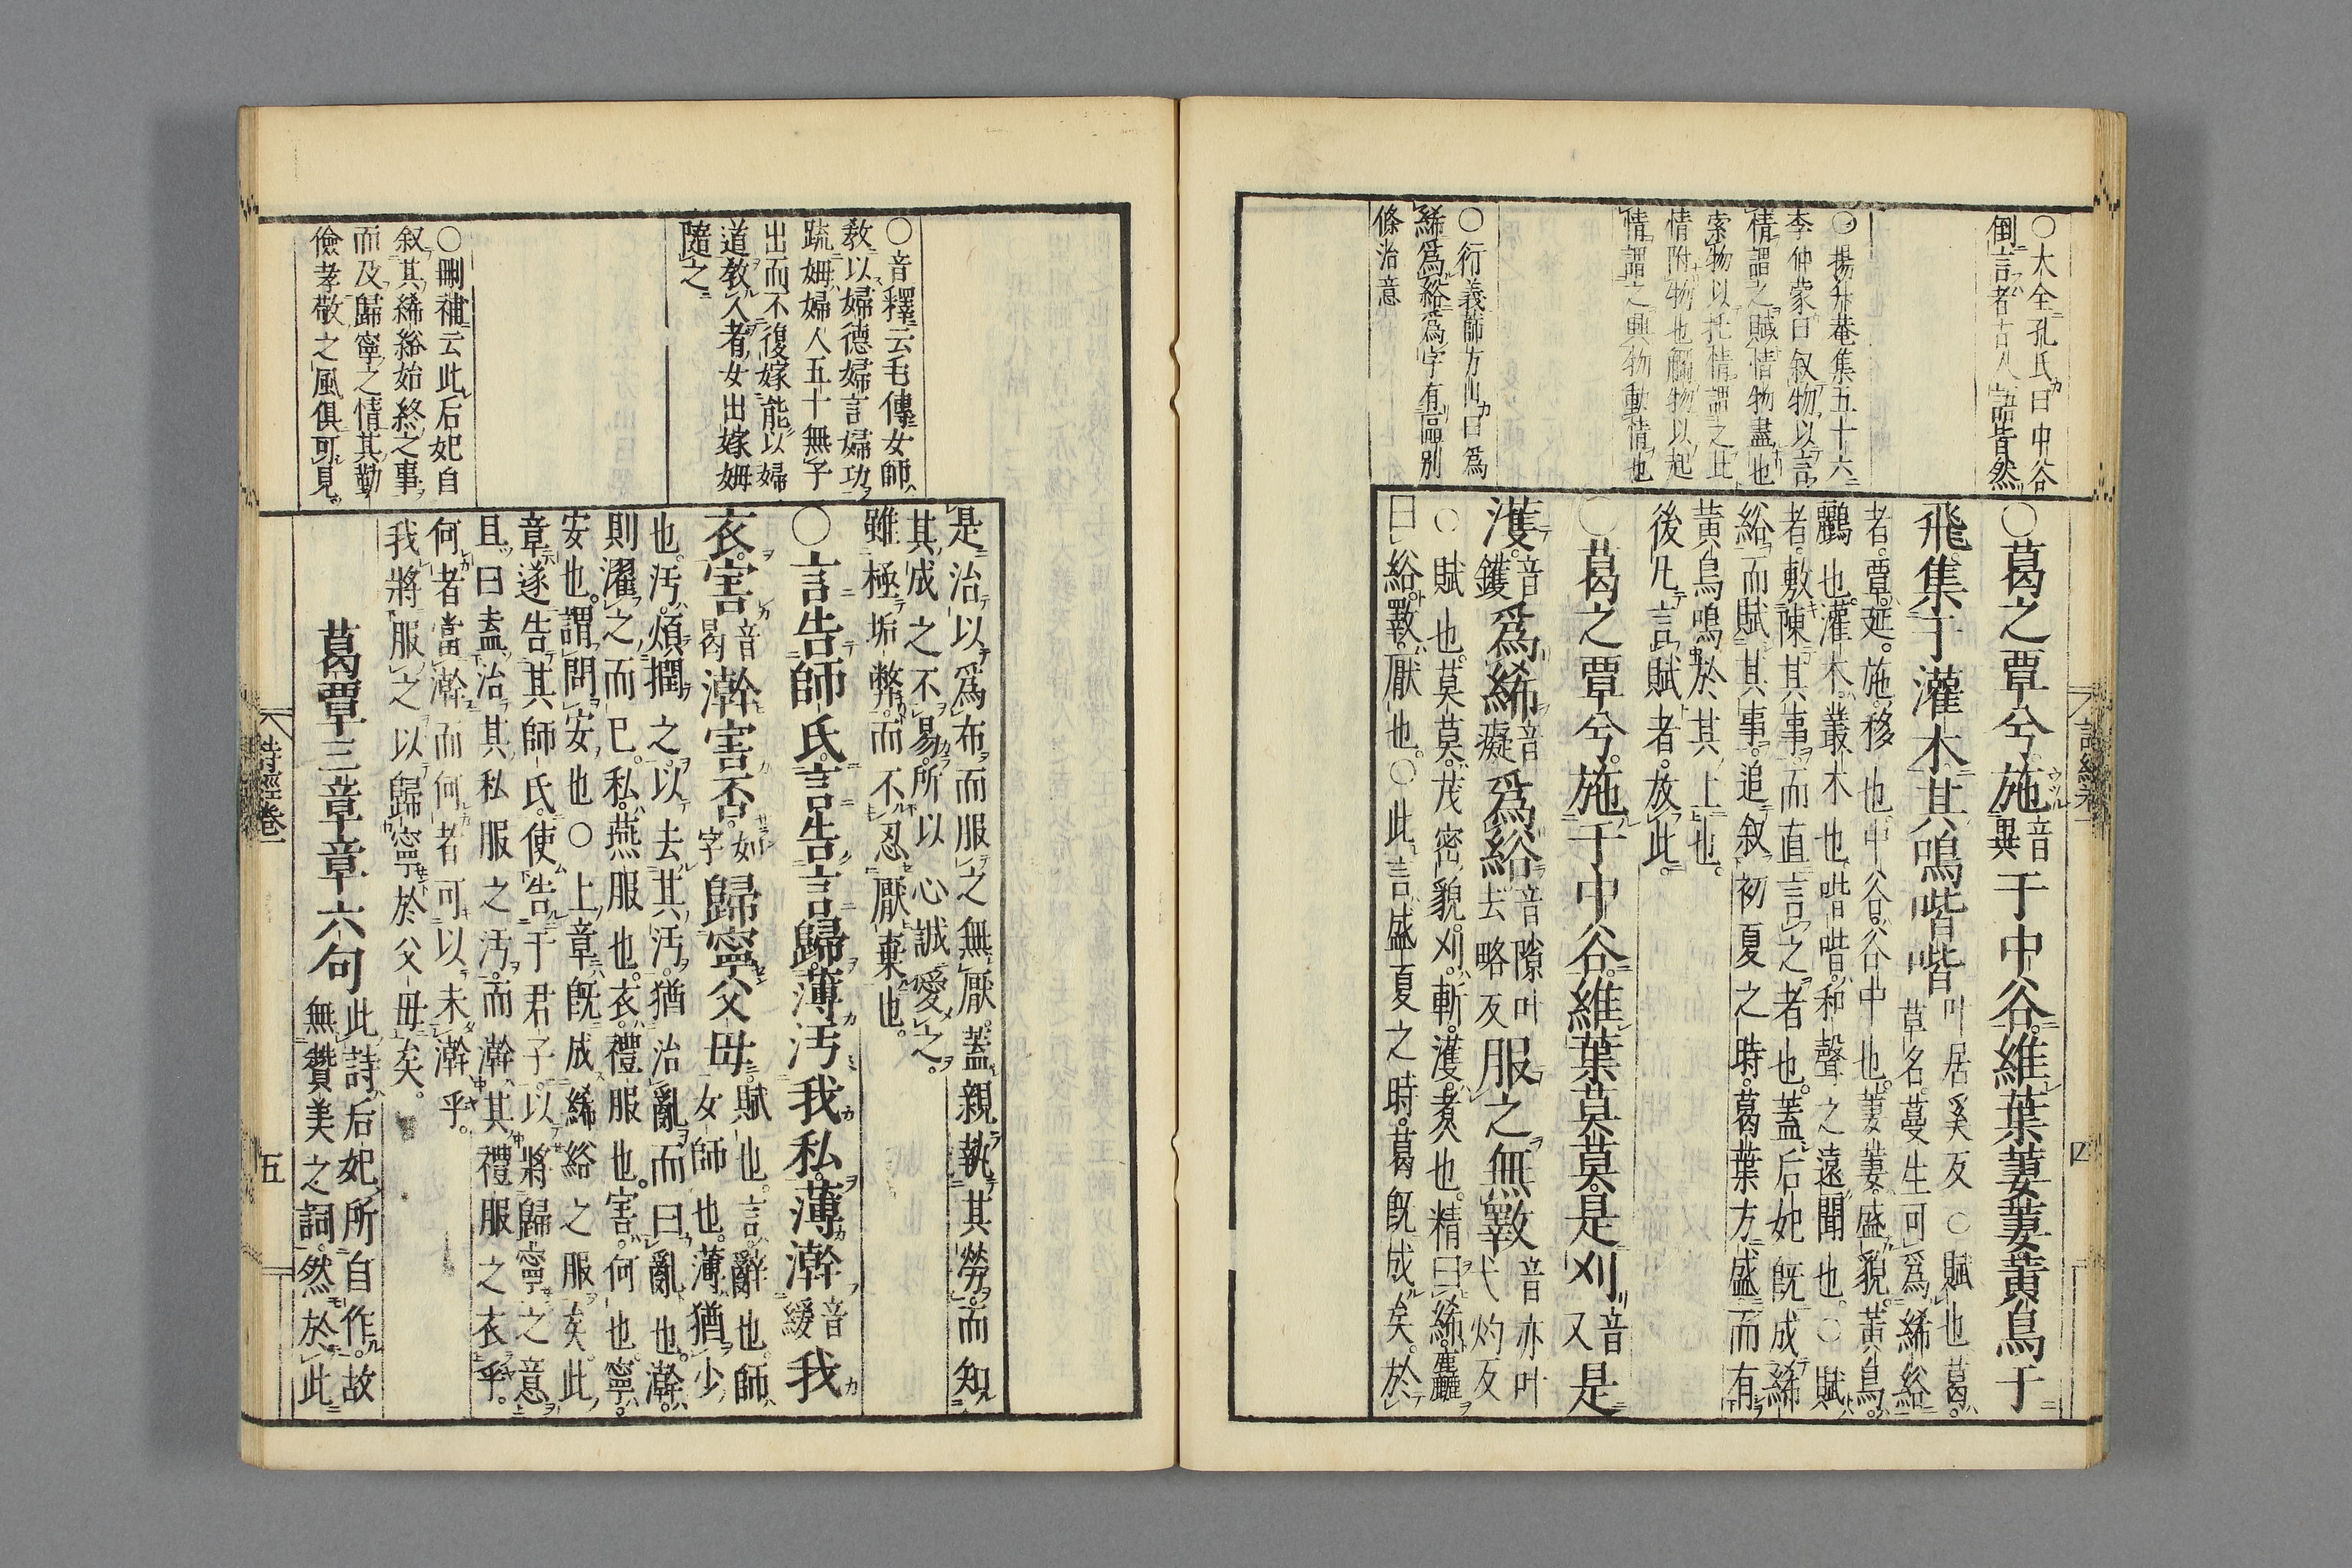 ○大全孔氏曰中谷
倒言者古人語皆然
○楊升菴集五十六
李仲蒙曰叙物以言
情謂之賦情物盡也
索物以托情謂之比
情附物也觸物以起
情謂之興物動情也
○衍義薛方山曰爲
絺爲綌爲字有區別
條治意
○葛之覃兮施音異于中谷維葉萋萋黃鳥于
飛集于灌木其鳴喈喈叶居奚反○賦也葛
草名蔓生可爲絺綌
者覃延施移也中谷谷中也萋萋盛貌黃鳥
鸝也灌木叢木也喈喈和聲之遠聞也○賦
者敷陳其事而直言之者也蓋后妃既成絺
綌而賦其事追叙初夏之時葛葉方盛而有
黃鳥鳴於其上也
後凡言賦者放此
○葛之覃兮施于中谷維葉莫莫是刈音又是
濩音鑊爲絺音癡爲綌音隙叶去略反服之無斁音亦叶弋灼反
○賦也莫莫茂密貌刈斬濩煮也精曰絺麤
曰綌斁厭也○此言盛夏之時葛既成矣於
詩經卷一
四
○音釋云毛傳女師
敎以婦德婦言婦功
疏姆婦人五十無子
出而不復嫁能以婦
道敎人者女出嫁姆
隨之
○刪補云此后妃自
叙其絺綌始終之事
而及歸寧之情其勤
儉孝敬之風俱可見
是治以爲布而服之無厭蓋親執其勞而知
其成之不易所以心誠愛之
雖極垢弊而不忍厭棄也
○言告師氏言告言歸薄汚我私薄澣音緩我
衣害音曷澣害否如字歸寧父母賦也言辭也師
女師也薄猶少
也汚煩撋之以去其汚猶治亂而曰亂也澣
則濯之而已私燕服也衣禮服也害何也寧
安也謂問安也○上章既成絺綌之服矣此
章遂告其師氏使告于君子以將歸寧之意
且曰盍治其私服之汚而澣其禮服之衣乎
何者當澣而何者可以未澣乎
我將服之以歸寧於父母矣
葛覃三章章六句此詩后妃所自作故
無贊美之詞然於此
詩經卷一
五